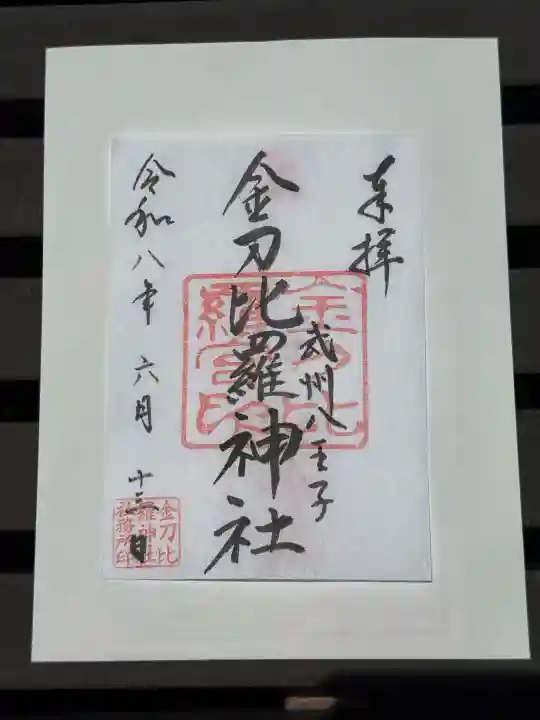 奉拝
武州八王子
金刀比羅神社
金刀比羅宮印
令和八年 六月 十三日
金刀比
羅神社
社務所印